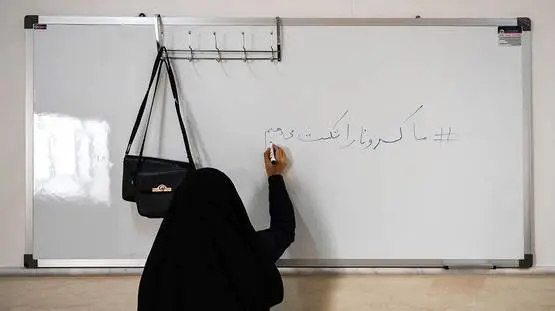 # ما کرونا را شکست می دهیم